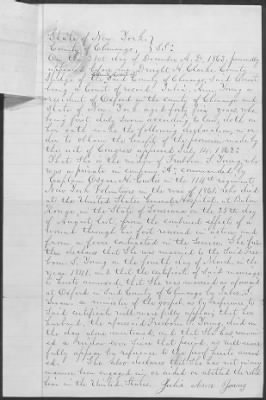 State of New York
County of Chenango, } SS.
On this 31st day of December A.D. 1863, personally
appeared before me Dwight H. Clarke County
Judge of the said County of Chenango, said Court
being a Court of record, Julia Ann Young a
resident of Oxford in the county of Chenango and
State of New York aged forty four years, who
being first duly sworn according to law, doth on
her oath make the following declaration, in or-
der to obtain the benefit of the provision made by
the act of Congress approved July 14, 1862
That She is the widow of Truman I. Young, who
was a private in company A, commanded by
Captain in the 114th regiment
New York Volunteers in the war of 1861, who died
at the United States General Hospital at Baton
Rouge, in the State of Louisiana on the 25th day
of August last from the combined effects of a
wound through his foot received in action, and
from a fever contracted in the service. She fur-
ther declares that She was married to the said Tru-
man I. Young on the fourth day of March in the
year 1841, and that the certificate of said marriage
is hereto annexed, that She was married as aforesaid
at Oxford in said County of Chenango by
a minister of the gospel, as by reference to
said certificate will more fully appear; that her
husband, the aforesaid Truman I. Young, died on
the day above mentioned, and that She has remain-
ed a widow ever since that period, as will more
fully appear by reference to the proof hereto annex-
ed. She also declares that she has not in any
manner been engaged in, or aided or abetted the rebel-
lion in the United States. Julia Ann Young